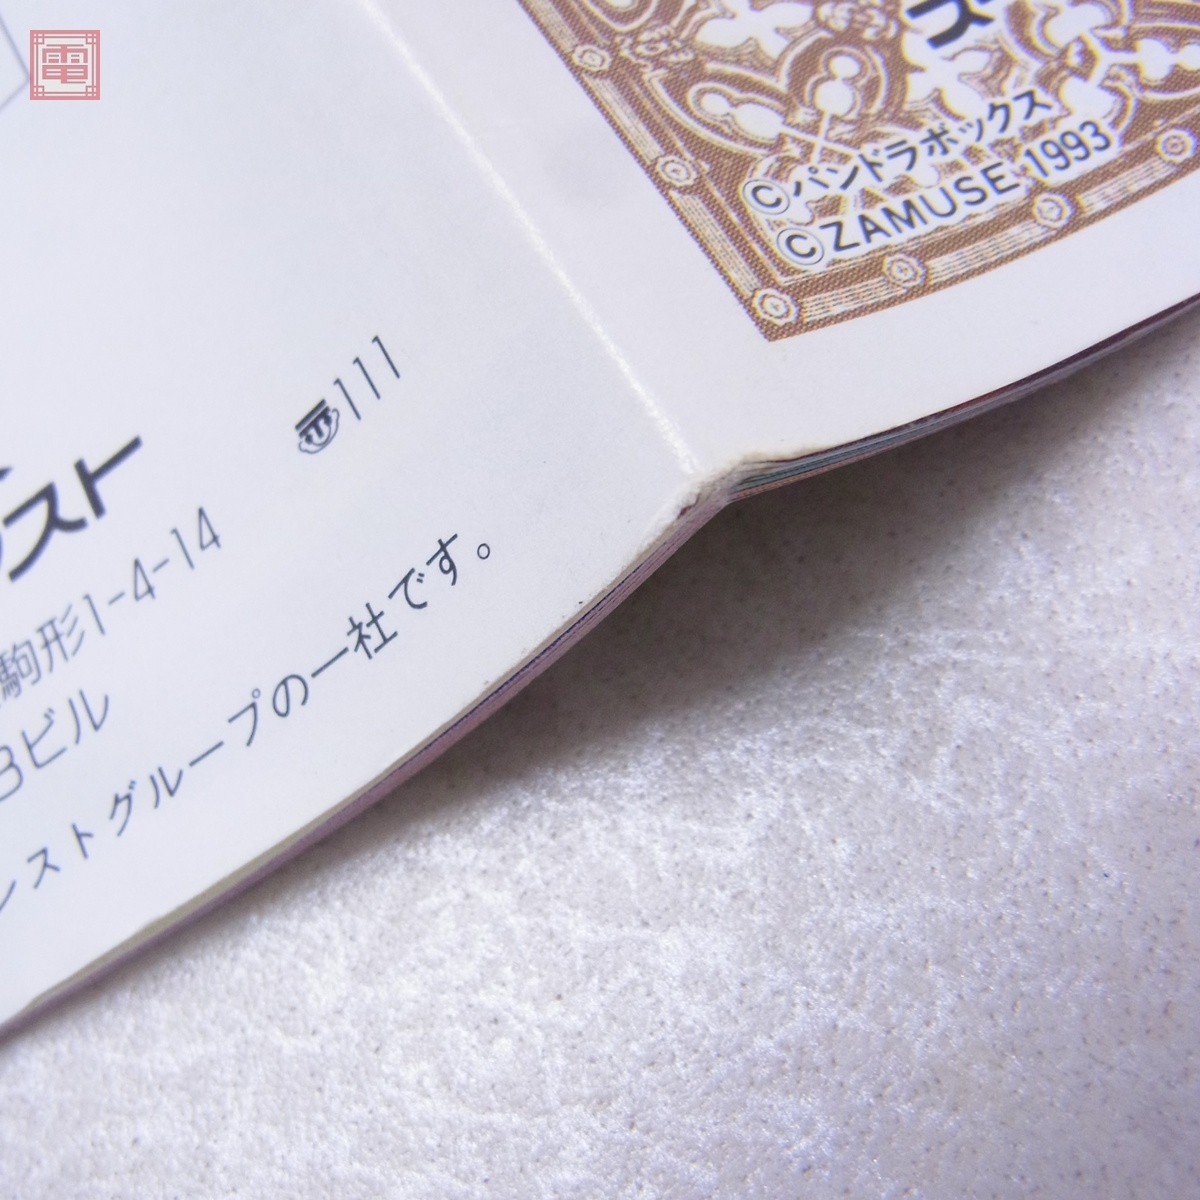 電
©パンドラボックス
©ZAMUSE 1993
〒111
スト
駒形1-4-14
3ビル
ストグループの一社です。